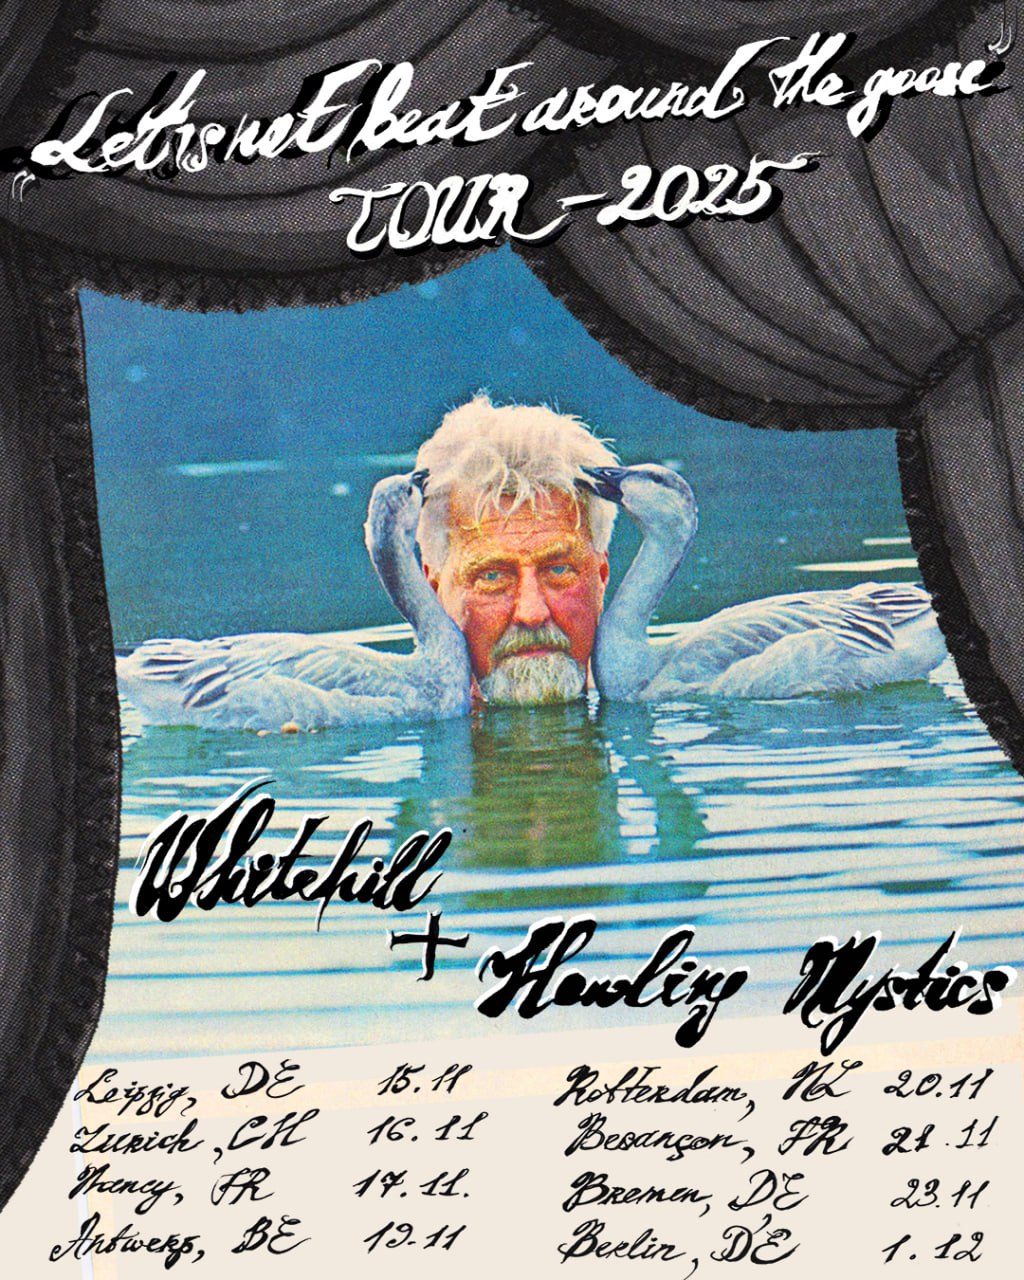 „Let's not beat around the goose"
TOUR - 2025
Whitehill
+
Howling Mystics
Leipzig, DE 15.11
Zurich, CH 16.11
Nancy, FR 17.11.
Antwerp, BE 19.11
Rotterdam, NL 20.11
Besançon, FR 21.11
Bremen, DE 23.11
Berlin, DE 1.12